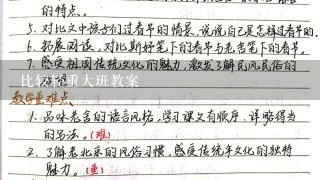 的特点。
5. 对比文中孩子们过春节的情景,说说自己是怎样过春节的。
6. 拓展阅读,对比斯好笔下的春节与老舍笔下的春节。
7. 感受祖国传统文化的魅力,激发了解民风民俗的
比较轻重大班教案
教学重难点
1. 品味老舍的语言风格,学习课文有顺序、详略得当
的写法。(难)
2. 了解老北京的风俗习惯,感受传统年文化的独特
魅力。(重)